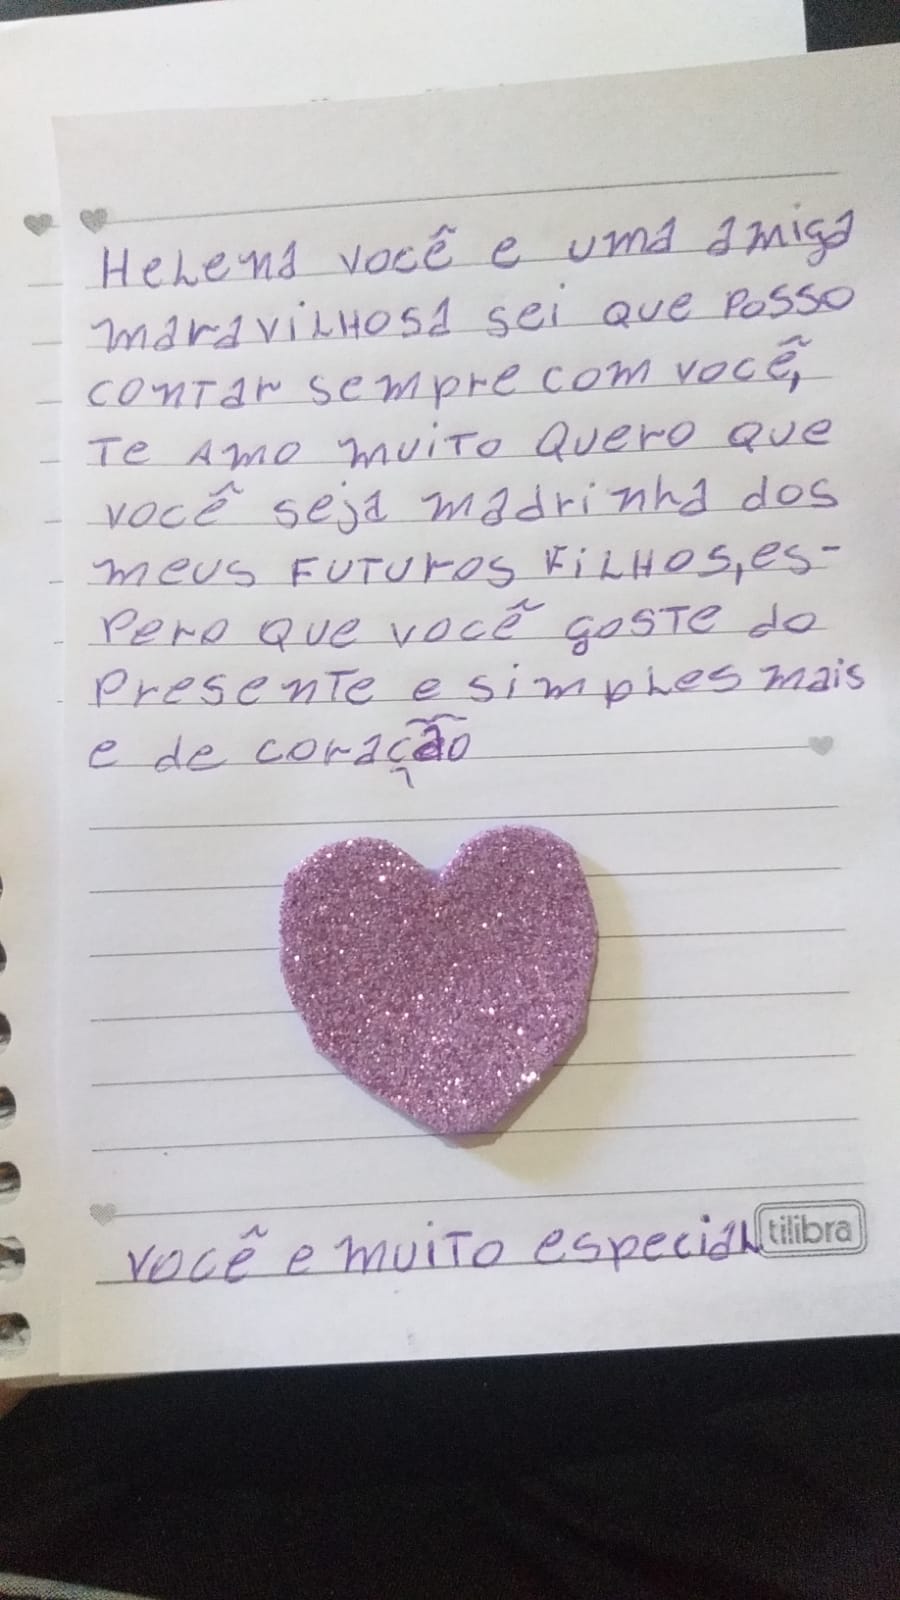 Helena você e uma amiga
maravilhosa sei que posso
contar sempre com você,
Te Amo muito Quero que
você seja madrinha dos
meus FUTUros FiLHOS, es-
pero que você goste do
presente e simples mais
e de coração
você e muito especial
tilibra